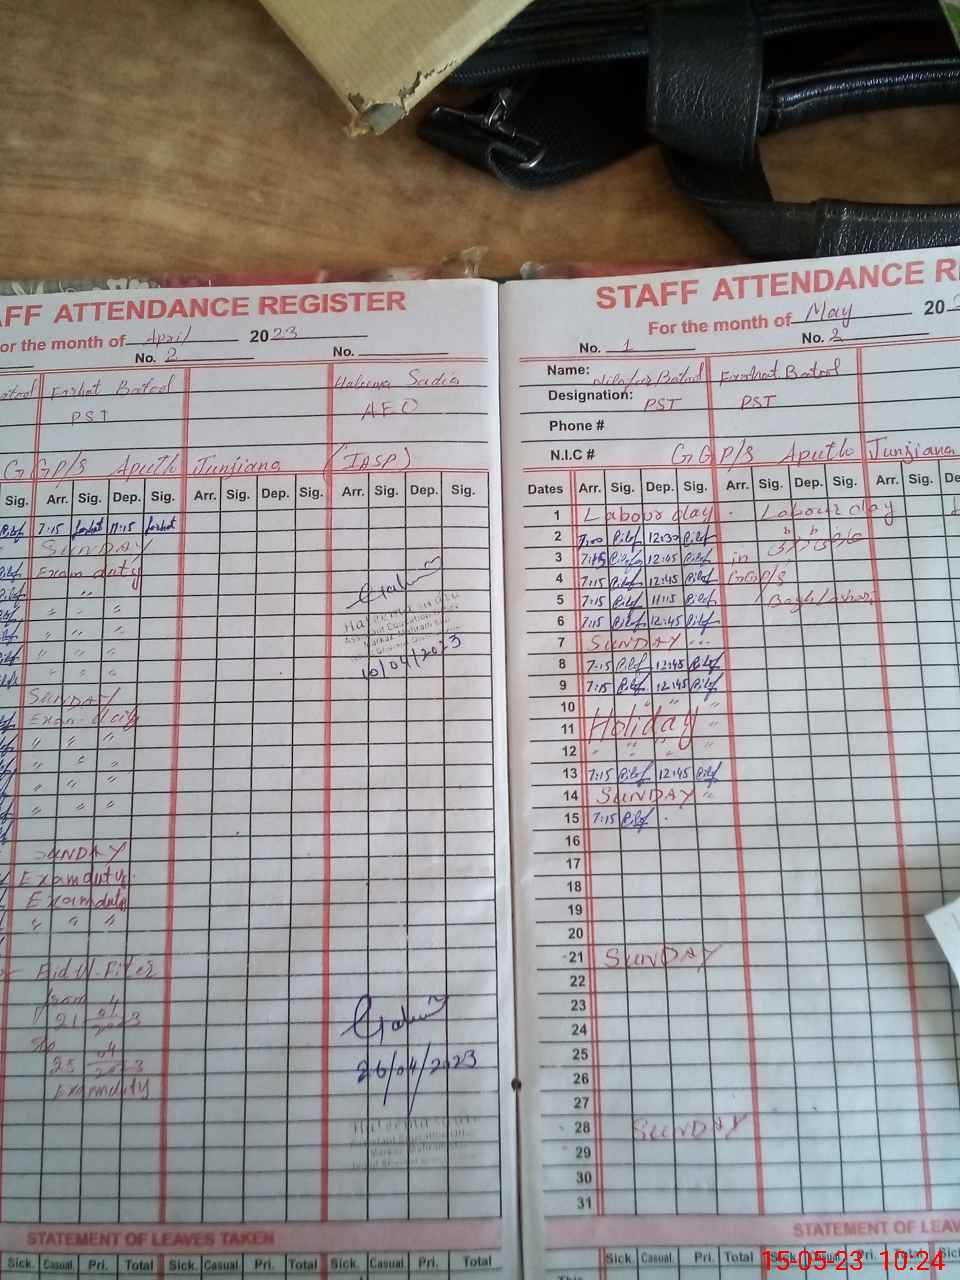 STAFF ATTENDANCE REGISTER
For the month of April 2023
No. 2 No.
Farhat Batool Haleema Sadia
PST AEO
GGP/S Aputh Junjiana (IASP)
Sig. Arr. Sig. Dep. Sig. Arr. Sig. Dep. Sig. Arr. Sig. Dep. Sig.
7:15 farhat 11:15 farhat
SUNDAY
Exam duty
" " "
" " "
" " "
" " "
10/04/2023
SUNDAY
Exam duty
" " "
" " "
" " "
" " "
SUNDAY
Exam duty
Exam duty
" " "
Eid-Ul-Fiter
from
21 04 2023
to
25 04 2023
Exam duty
26/04/2023
STATEMENT OF LEAVES TAKEN
Sick. Casual Pri. Total Sick. Casual Pri. Total Sick. Casual Pri. Total
STAFF ATTENDANCE RE
For the month of May 20
No. 1 No. 2
Name: Nilofur Batool Farhat Batool
Designation: PST PST
Phone #
N.I.C # GGP/S Aputh Junjiana
Dates Arr. Sig. Dep. Sig. Arr. Sig. Dep. Sig. Arr. Sig. De
1 Labour day Labour day
2 7:00 Pilof 12:30 Pilof
3 7:15 Pilof 12:45 Pilof in
4 7:15 Pilof 12:45 Pilof GGP/S
5 7:15 Pilof 11:15 Pilof
6 7:15 Pilof 12:45 Pilof
7 SUNDAY
8 7:15 Pilof 12:45 Pilof
9 7:15 Pilof 12:45 Pilof
10 " " "
11 Holiday "
12 " " " "
13 7:15 Pilof 12:45 Pilof
14 SUNDAY "
15 7:15 Pilof
16
17
18
19
20
21 SUNDAY
22
23
24
25
26
27
28 SUNDAY
29
30
31
STATEMENT OF LEAV
Sick. Casual Pri. Total Sick. Casual Pri. Total Sick.
15-05-23 10:24